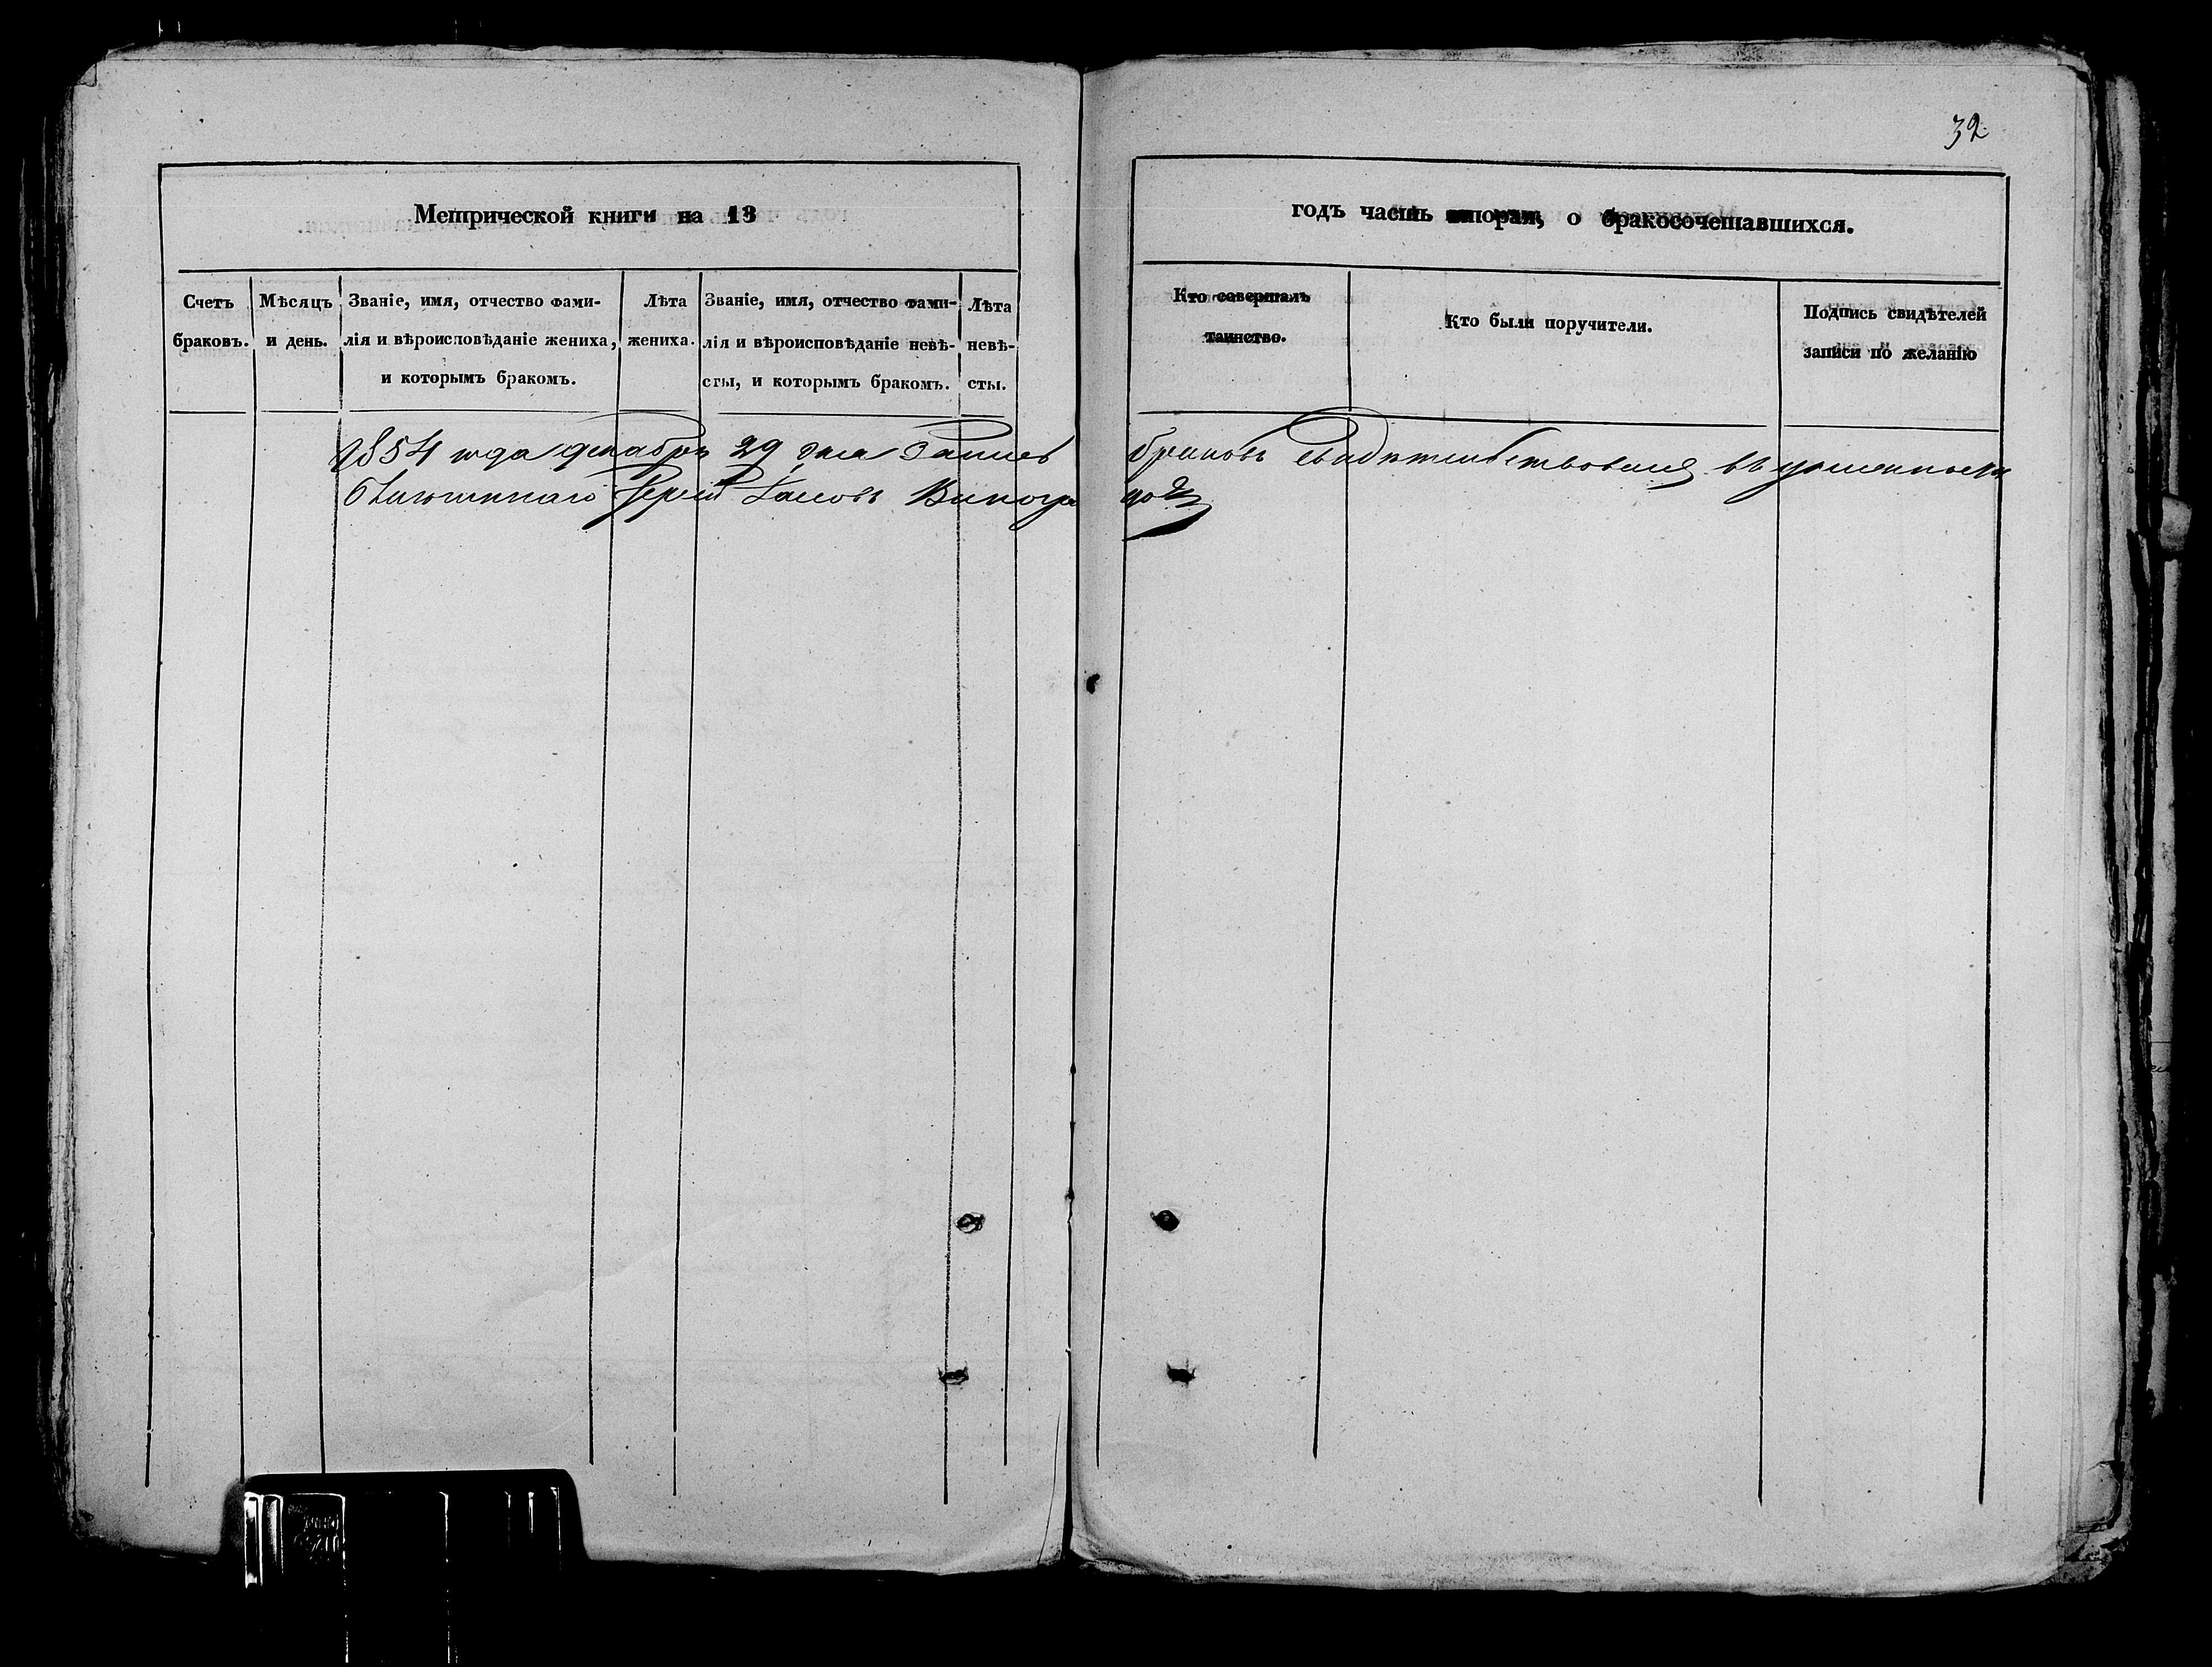 32
Метрической книги на 18
годъ часть вторая, о бракосочетавшихся.
Счетъ браковъ.
Мѣсяцъ и день.
Званіе, имя, отчество фами-
лія и вѣроисповѣданіе жениха,
и которымъ бракомъ.
Лѣта
жениха.
Званіе, имя, отчество фами-
лія и вѣроисповѣданіе невѣ-
сты, и которымъ бракомъ.
Лѣта
невѣ-
сты.
Кто совершалъ
таинство.
Кто были поручители.
Подпись свидѣтелей
записи по желанію
1854 года декабря 29 дня Запись браковъ свидѣтельствовалъ
Благочинный Іерей Виноградовъ